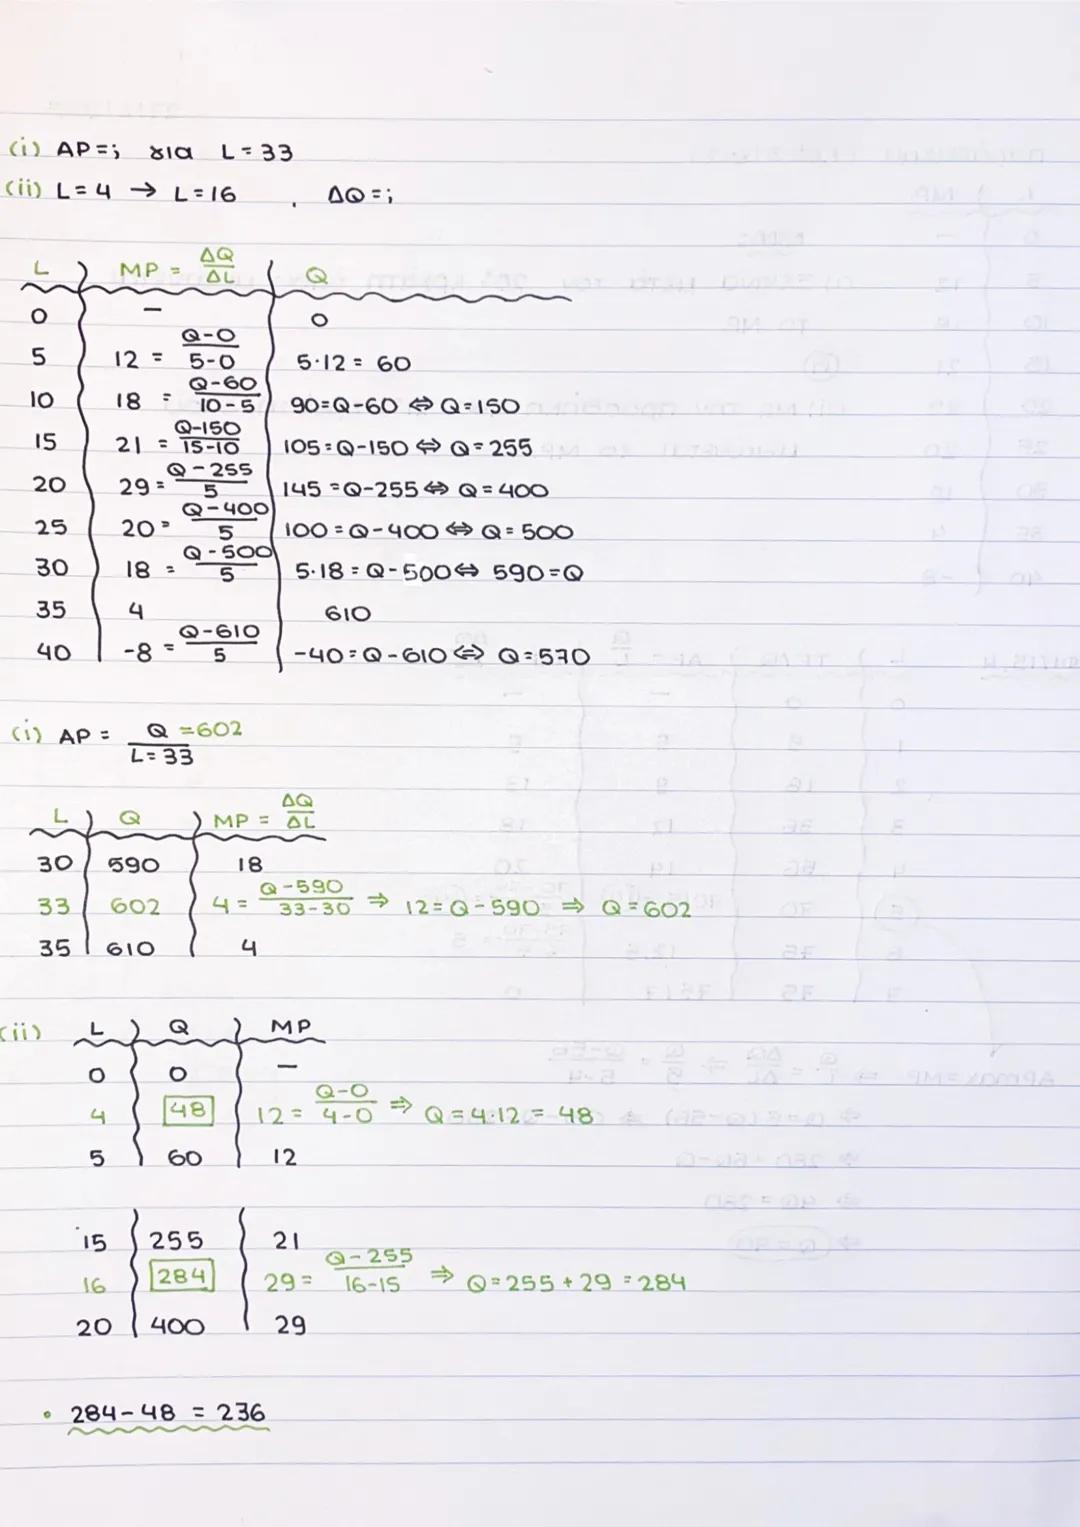 (i) AP=; για L=33
(ii) L=4 → L=16 , ΔQ=;
L MP = ΔQ/ΔL Q
0 – 0
5 12 = Q-0/5-0 5·12= 60
10 18 = Q-60/10-5 90=Q-60 ⇔ Q=150
15 21 = Q-150/15-10 105=Q-150 ⇔ Q=255
20 29= Q-255/5 145=Q-255 ⇔ Q=400
25 20= Q-400/5 100=Q-400 ⇔ Q=500
30 18 = Q-500/5 5·18=Q-500 ⇔ 590=Q
35 4 610
40 -8 = Q-610/5 -40=Q-610 ⇔ Q=570
(i) AP = Q=602/L=33
L Q MP = ΔQ/ΔL
30 590 18
33 602 4 = Q-590/33-30 ⇒ 12=Q-590 ⇒ Q=602
35 610 4
(ii) L Q MP
0 0 –
4 48 12= Q-0/4-0 ⇒ Q=4·12= 48
5 60 12
15 255 21
16 284 29= Q-255/16-15 ⇒ Q=255+29=284
20 400 29
• 284-48 = 236